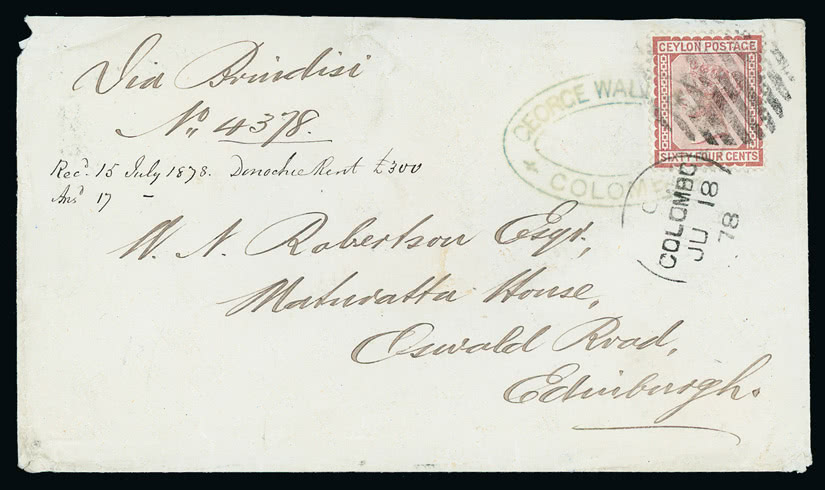 Via Brindisi
No. 4378.
Recd. 15 July 1878. Donochie Rent £300
Ansd 17 –
W. N. Robertson Esqr,
Maturatta House,
Oswald Road,
Edinburgh.
GEORGE WALL
COLOMB
CEYLON POSTAGE
SIXTY FOUR CENTS
COLOMBO
JU 18
78